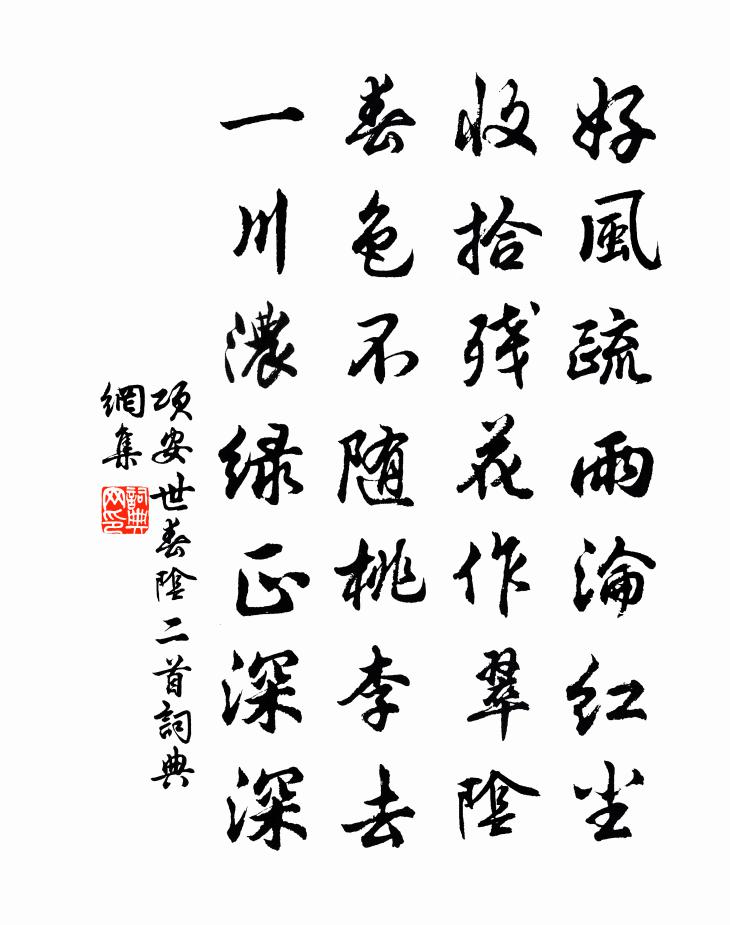 好風疏雨淪紅尘
收拾残花作翠陰
春色不随桃李去
一川濃绿正深深
項安世春陰二首詞典
網集
詞典网印